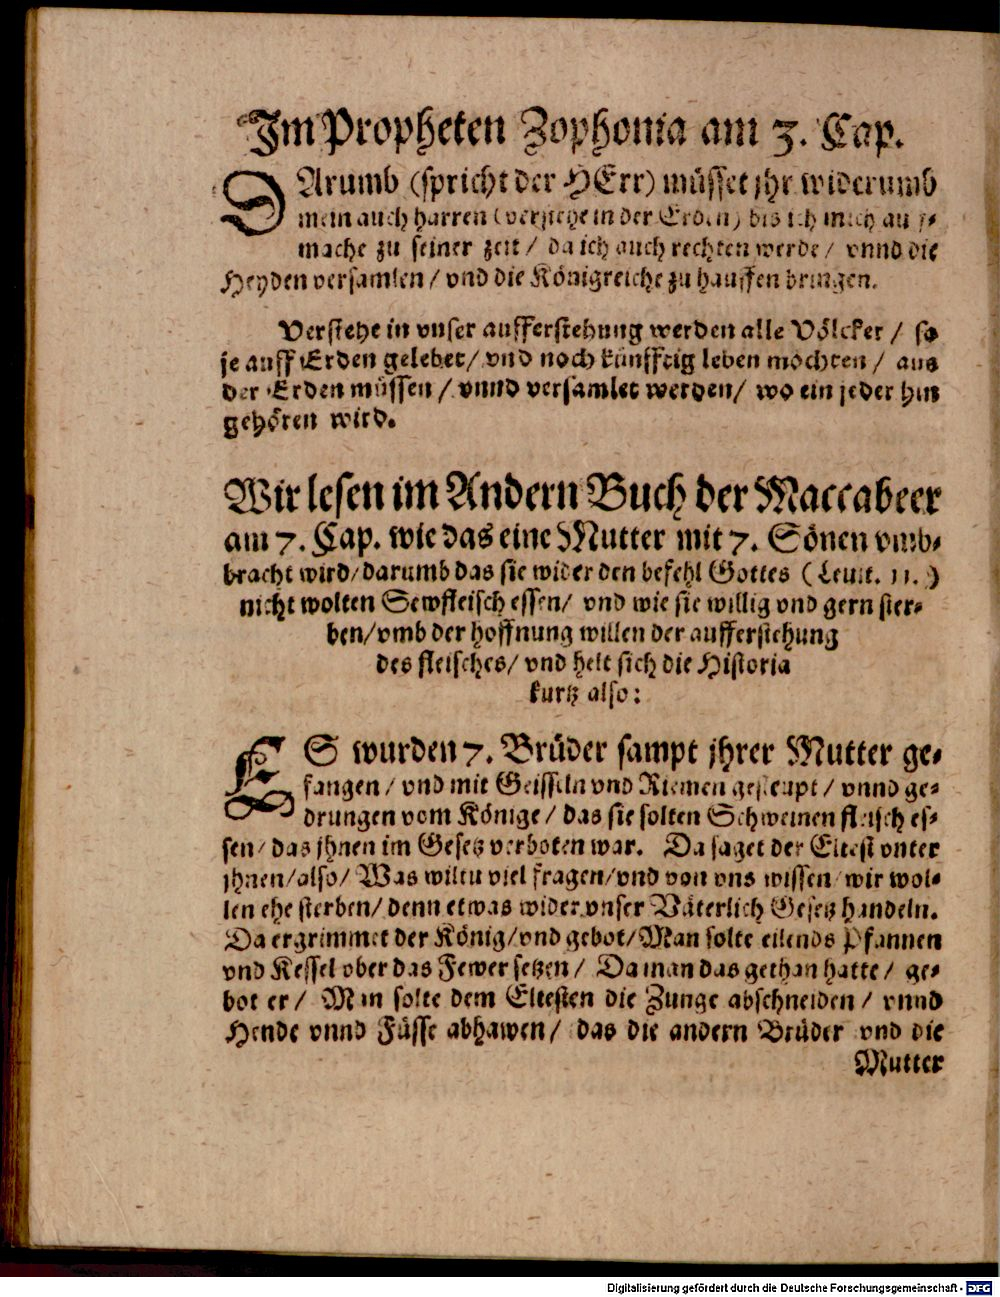 Im Propheten Zophonia am 3. Cap.
DArumb (spricht der HErr) müsset jhr widerumb
mein auch harren (verziehe in der Erden) bis ich mich auff-
mache zu seiner zeit / da ich auch rechten werde / vnnd die
Heyden versamlen / vnd die Königreiche zu hauffen bringen.
Verstehe in vnser aufferstehung werden alle Völcker / so
je auff Erden gelebet / vnd noch künfftig leben möchten / aus
der Erden müssen / vnnd versamlet werden / wo ein jeder hin
gehören wird.
Wir lesen im Andern Buch der Maccabeer
am 7. Cap. wie das eine Mutter mit 7. Sönen vmb-
bracht wird / darumb das sie wider den befehl Gottes (Leuit. 11.)
nicht wolten Sewfleisch essen / vnd wie sie willig vnd gern ster-
ben / vmb der hoffnung willen der aufferstehung
des fleisches / vnd helt sich die Historia
kurtz also:
ES wurden 7. Brüder sampt jhrer Mutter ge-
fangen / vnd mit Geisseln vnd Riemen gesteupt / vnnd ge-
drungen vom Könige / das sie solten Schweinen fleisch es-
sen / das jhnen im Gesetz verboten war. Da saget der Eltest vnter
jhnen / also / Was wiltu viel fragen / vnd von vns wissen / wir wol-
len ehe sterben / denn etwas wider vnser Väterlich Gesetz handeln.
Da ergrimmet der König / vnd gebot / Man solte eilends Pfannen
vnd Kessel ober das Fewer setzen / Da man das gethan hatte / ge-
bot er / Man solte dem Eltesten die Zunge abschneiden / vnnd
Hende vnnd Füsse abhawen / das die andern Brüder vnd die
Mutter
Digitalisierung gefördert durch die Deutsche Forschungsgemeinschaft - DFG